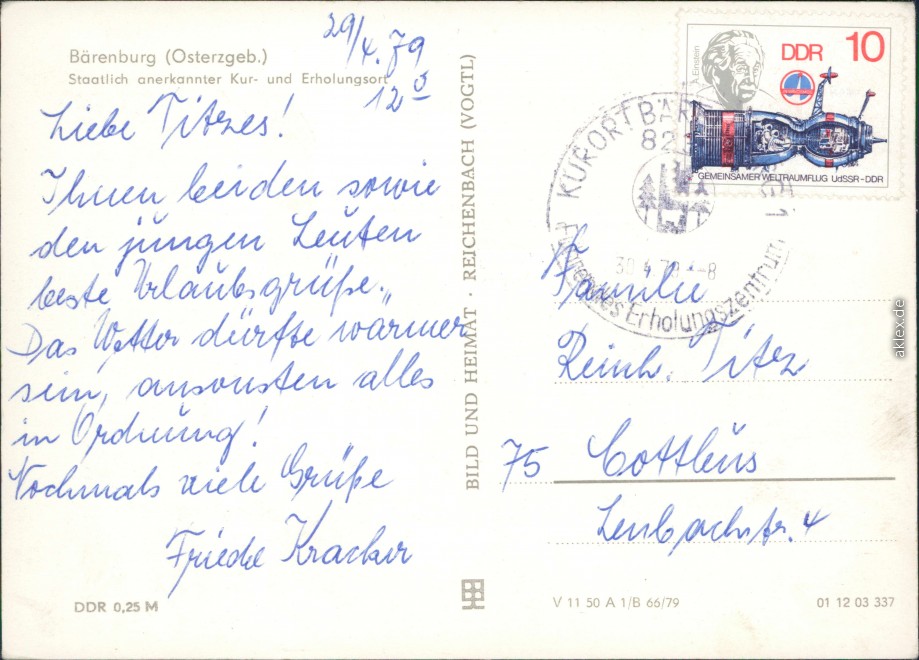 Bärenburg (Osterzgeb.)
Staatlich anerkannter Kur- und Erholungsort
29/4.79
12⁰⁵
Liebe Titzes!
Ihnen beiden sowie
den jungen Leuten
beste Urlaubsgrüße.
Das Wetter dürfte wärmer
sein, ansonsten alles
in Ordnung!
Nochmals viele Grüße
Friede Kracker
DDR 0,25 M
BILD UND HEIMAT · REICHENBACH (VOGTL)
A. Einstein
DDR 10
GEMEINSAMER WELTRAUMFLUG UdSSR-DDR
KURORT BÄR
82
30.4.79 -8
Erholungszentrum
Familie
Reinh. Titz
75 Cottbus
Lenbachstr. 4
V 11 50 A 1/B 66/79
01 12 03 337
aklex.de